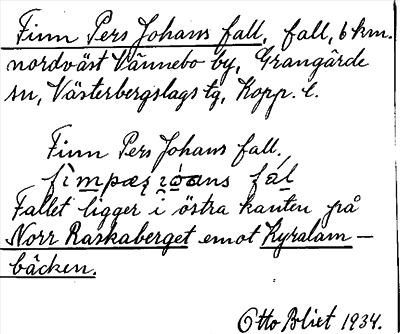 Finn Pers Johans fall, fall, 6 km.
nordväst Vännebo by, Grangärde
sn, Västerbergslags tg, Kopp. l.
Finn Pers Johans fall,
Fallet ligger i östra kanten på
Norr Raskaberget emot Kyralam-
bäcken.
Otto Blixt 1934.